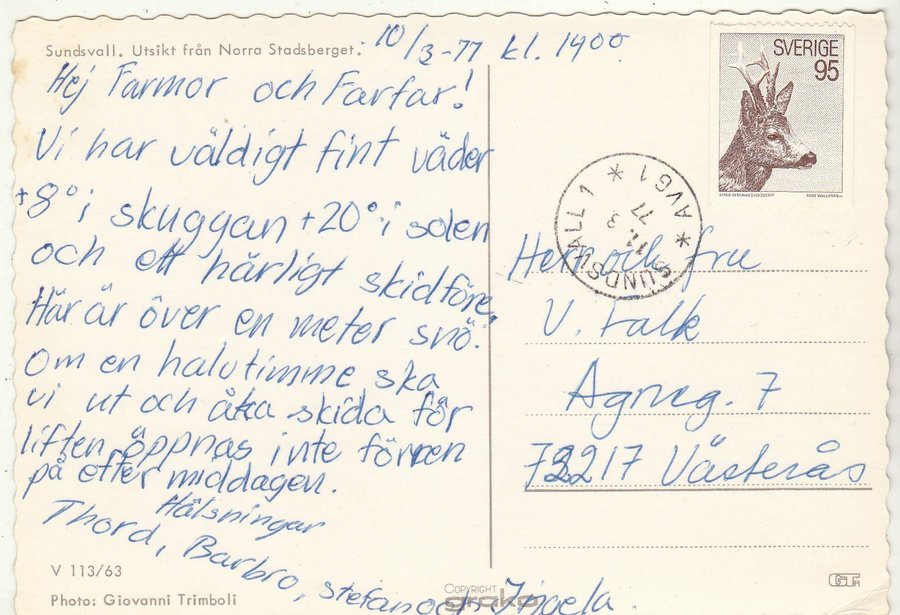 Sundsvall. Utsikt från Norra Stadsberget.
10/3-77 kl. 1400
Hej Farmor och Farfar!
Vi har väldigt fint väder
+8° i skuggan +20° i solen
och ett härligt skidföre.
Här är över en meter snö.
Om en halvtimme ska
vi ut och åka skida för
liften öppnas inte förren
på efter middagen.
Hälsningar
Thord, Barbro, Stefan och
V 113/63
Photo: Giovanni Trimboli
SVERIGE
95
SUNDSVALL 1 * AVG 1 *
11. 3
77
Herr och fru
V. Falk
Agneg. 7
72217 Västerås
COPYRIGHT
grako